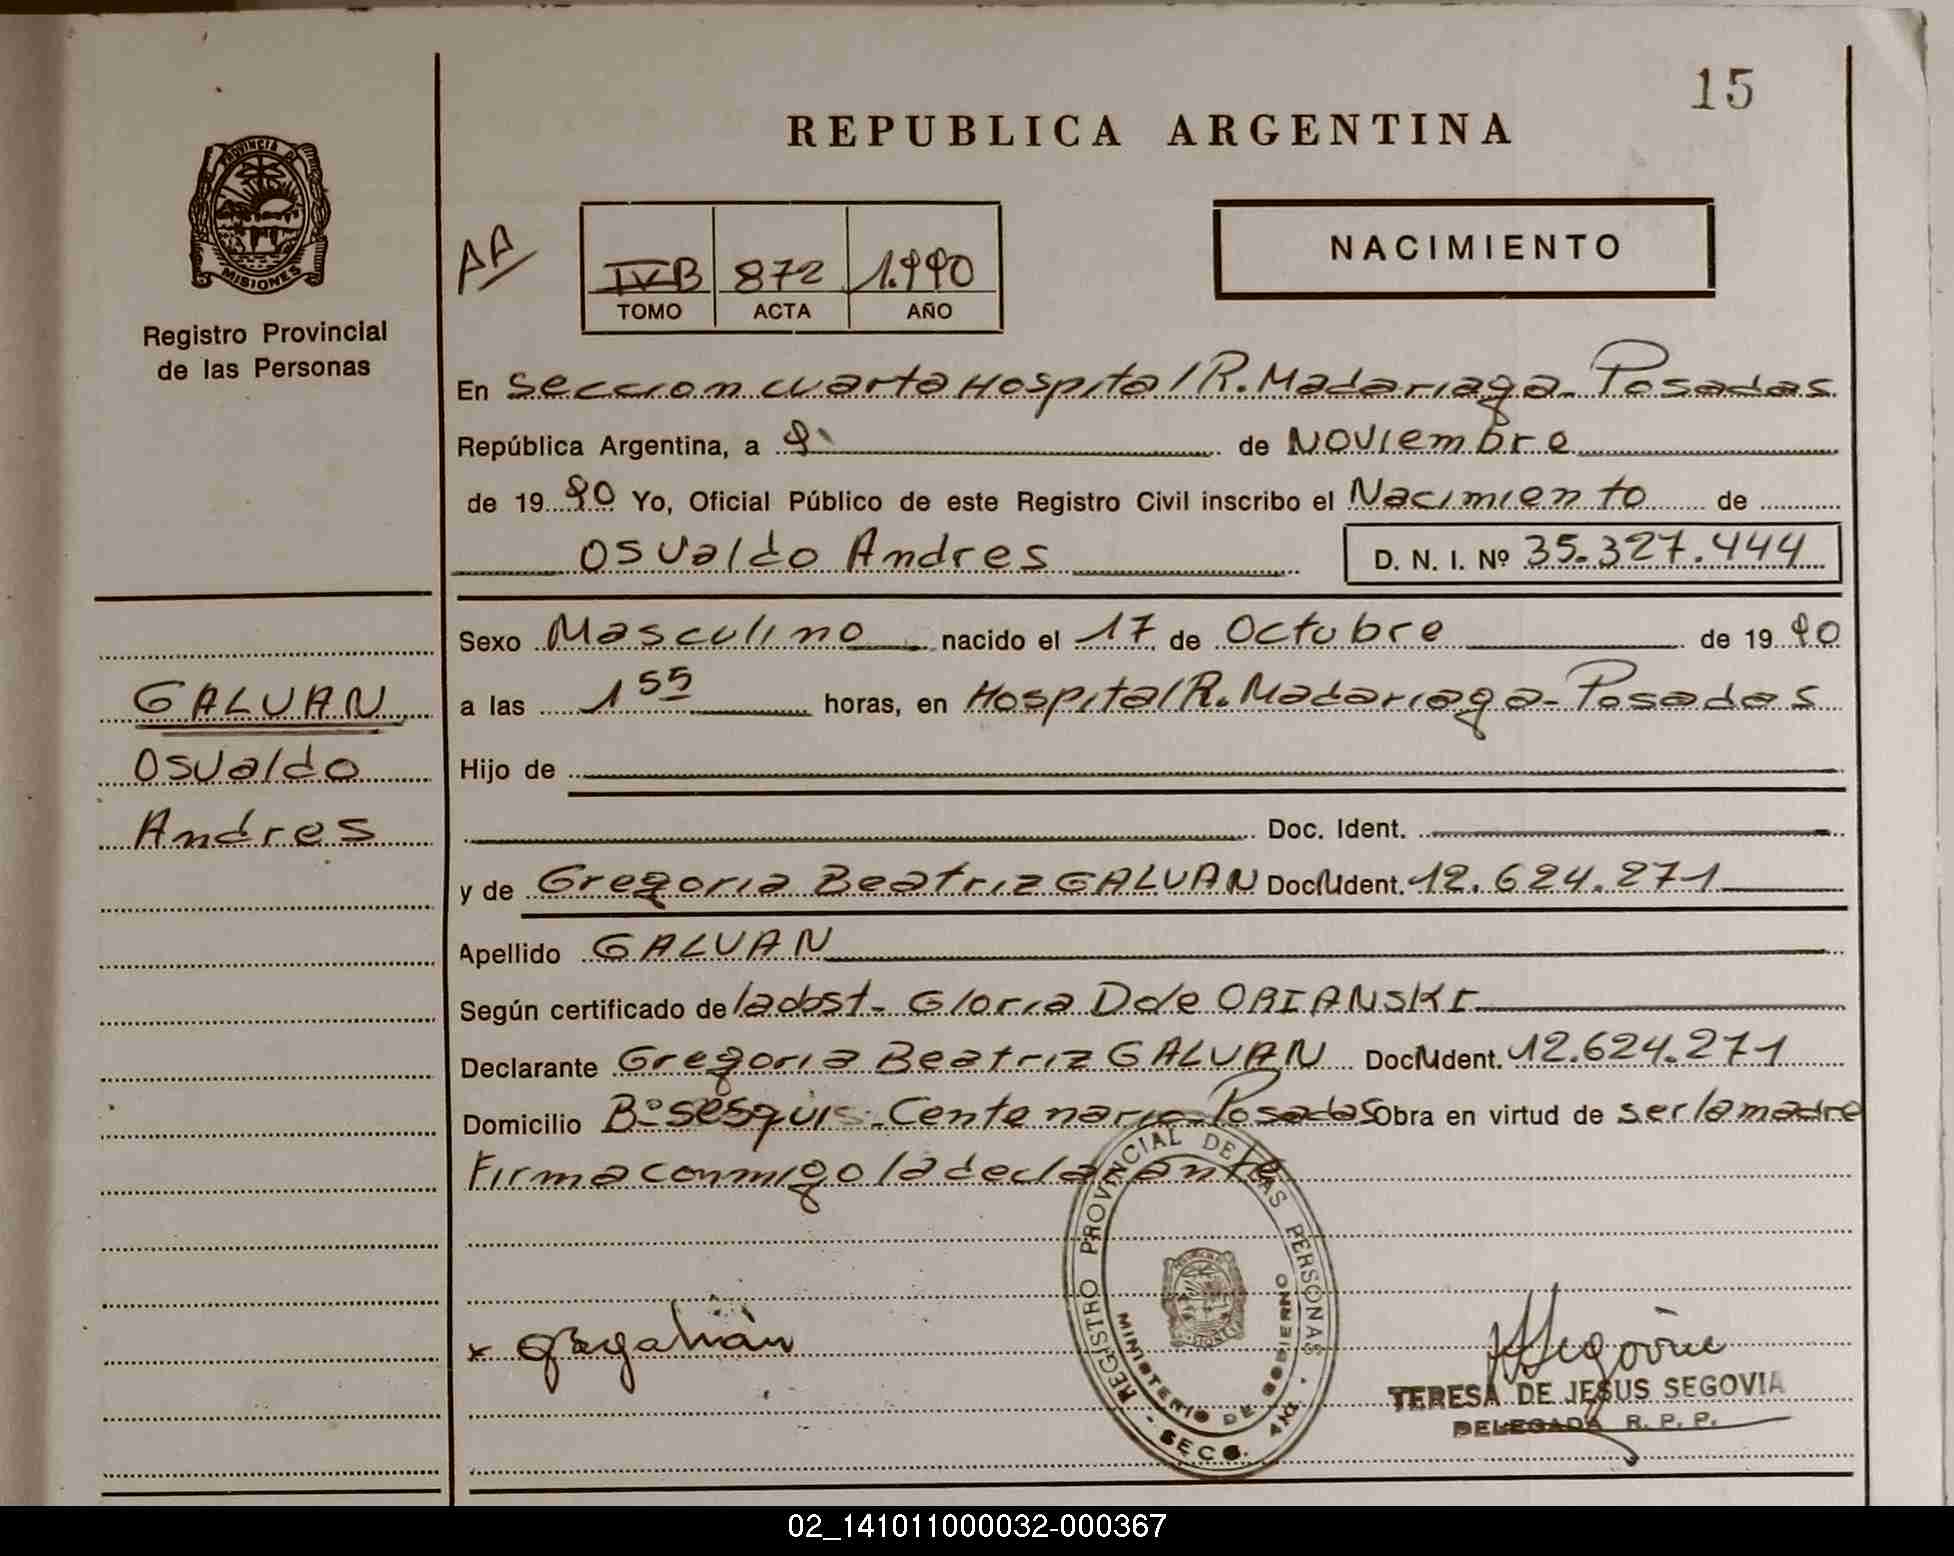 15
REPUBLICA ARGENTINA
PROVINCIA DE
MISIONES
Registro Provincial
de las Personas
AA
IVB 872 1.990
TOMO ACTA AÑO
NACIMIENTO
En Seccion cuarta Hospital R. Madariaga - Posadas
República Argentina, a 9 de Noviembre
de 19 90 Yo, Oficial Público de este Registro Civil inscribo el Nacimiento de
Osvaldo Andres D. N. I. Nº 35.327.444
GALVAN
Osvaldo
Andres
Sexo Masculino nacido el 17 de Octubre de 19 90
a las 1 55 horas, en Hospital R. Madariaga - Posadas
Hijo de
Doc. Ident.
y de Gregoria Beatriz GALVAN Doc. Ident. 12.624.271
Apellido GALVAN
Según certificado de la obst. Gloria D de ORIANSKI
Declarante Gregoria Beatriz GALVAN Doc. Ident. 12.624.271
Domicilio Bº Sesquis-Centenario - Posadas Obra en virtud de ser la madre
Firma conmigo la declarante
REGISTRO PROVINCIAL DE LAS PERSONAS
MINISTERIO DE GOBIERNO
SECC. 4ta
x
TERESA DE JESUS SEGOVIA
DELEGADA R. P. P.
02_141011000032-000367